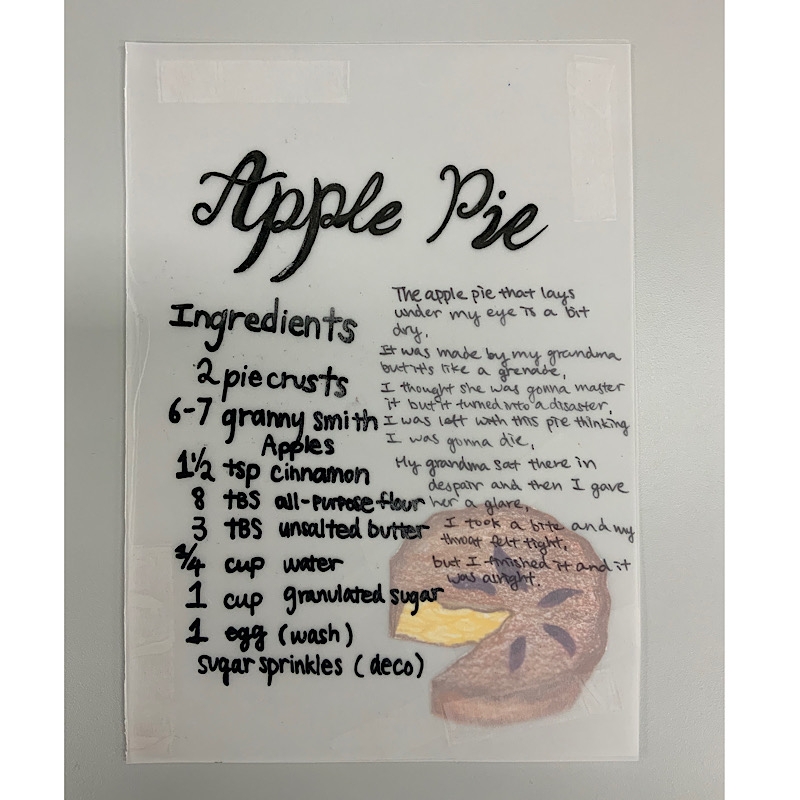 Apple Pie
Ingredients
2 pie crusts
6-7 granny smith
Apples
1½ tsp cinnamon
8 TBS all-purpose flour
3 TBS unsalted butter
¾ cup water
1 cup granulated sugar
1 egg (wash)
sugar sprinkles (deco)
The apple pie that lays
under my eye is a bit
dry,
It was made by my grandma
but it's like a grenade,
I thought she was gonna master
it but it turned into a disaster,
I was left with this pie thinking
I was gonna die,
My grandma sat there in
despair and then I gave
her a glare,
I took a bite and my
throat felt tight,
but I finished it and it
was alright.